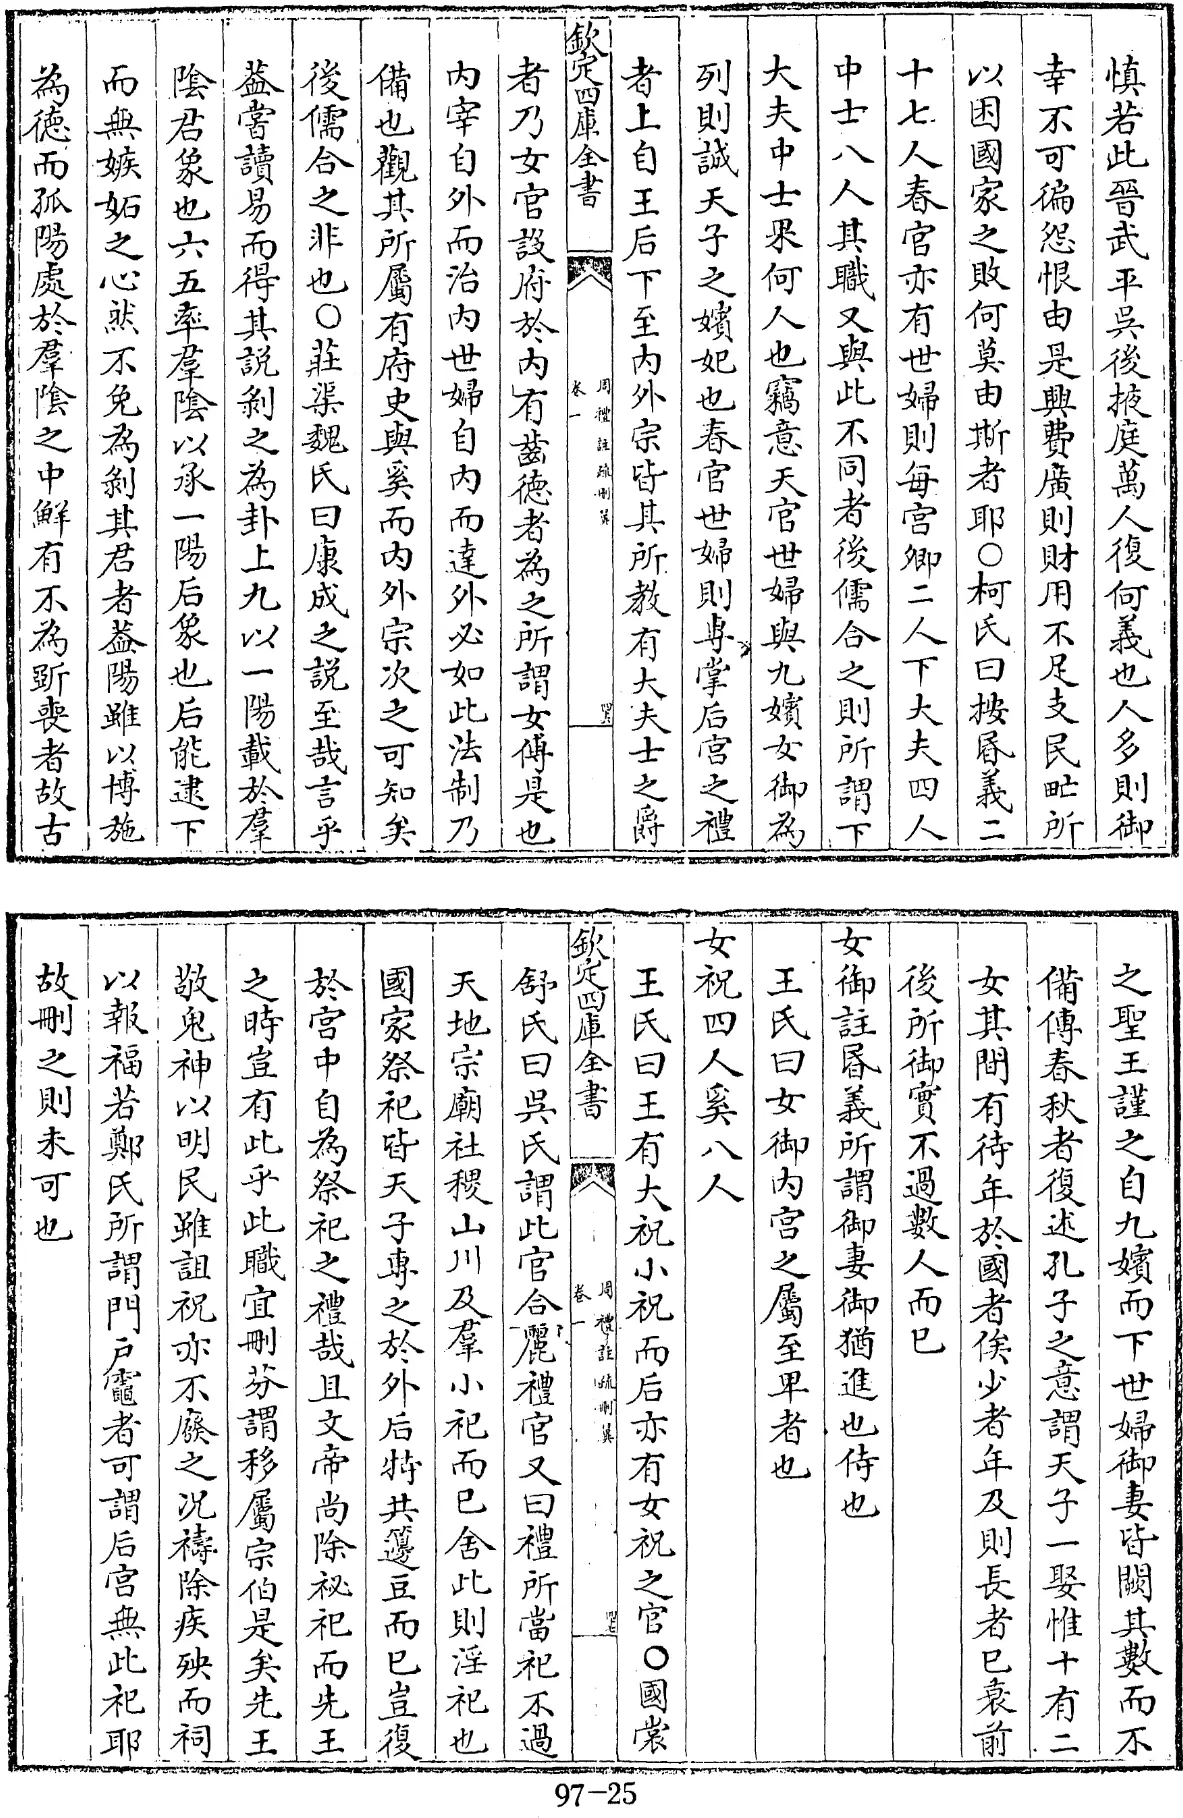 慎若此晉武平吳後掖庭萬人復何義也人多則御
幸不可徧怨恨由是興費廣則財用不足支民畝所
以困國家之敗何莫由斯者耶○柯氏曰按昬義二
十七人春官亦有世婦則每宮卿二人下大夫四人
中士八人其職又與此不同者後儒合之則所謂下
大夫中士果何人也竊意天官世婦與九嬪女御為
列則誠天子之嬪妃也春官世婦則專掌后宮之禮
者上自王后下至内外宗皆其所教有大夫士之爵
欽定四庫全書
周禮註疏刪翼
卷一
者乃女官設府於内有齒德者為之所謂女傅是也
内宰自外而治内世婦自内而達外必如此法制乃
備也觀其所屬有府史與奚而内外宗次之可知矣
後儒合之非也○莊渠魏氏曰康成之説至哉言乎
葢嘗讀易而得其説剝之為卦上九以一陽載於羣
陰君象也六五率羣陰以承一陽后象也后能逮下
而無嫉妬之心然不免為剝其君者葢陽雖以博施
為德而孤陽處於羣陰之中鮮有不為斵喪者故古
之聖王謹之自九嬪而下世婦御妻皆闕其數而不
備傳春秋者復述孔子之意謂天子一娶惟十有二
女其間有待年於國者俟少者年及則長者已衰前
後所御實不過數人而已
女御註昬義所謂御妻御猶進也侍也
王氏曰女御内宮之屬至卑者也
女祝四人奚八人
王氏曰王有大祝小祝而后亦有女祝之官○國裳
欽定四庫全書
周禮註疏刪翼
卷一
舒氏曰吳氏謂此官合麗禮官又曰禮所當祀不過
天地宗廟社稷山川及羣小祀而已舍此則淫祀也
國家祭祀皆天子專之於外后特共籩豆而已豈復
於宮中自為祭祀之禮哉且文帝尚除祕祀而先王
之時豈有此乎此職宜刪芬謂移屬宗伯是矣先王
敬鬼神以明民雖詛祝亦不廢之况禱除疾殃而祠
以報福若鄭氏所謂門戸竈者可謂后宮無此祀耶
故刪之則未可也
97-25